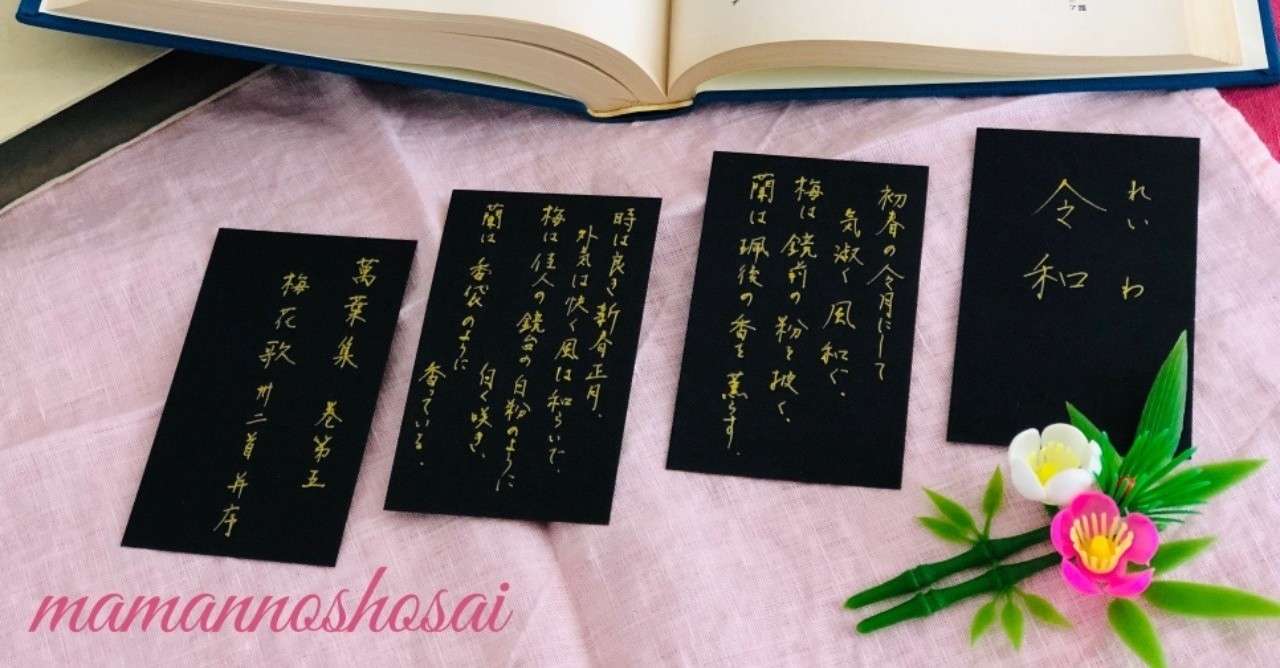 れいわ
令和
初春の令月にして
気淑く風和ぐ、
梅は鏡前の粉を披く、
蘭は珮後の香を薫らす。
時は良き新春正月、
外気は快く風は和らいで、
梅は佳人の鏡台の白粉のように
白く咲き、
蘭は香袋のように
香っている。
萬葉集 巻第五
梅花歌 卅二首 并序
mamannoshosai